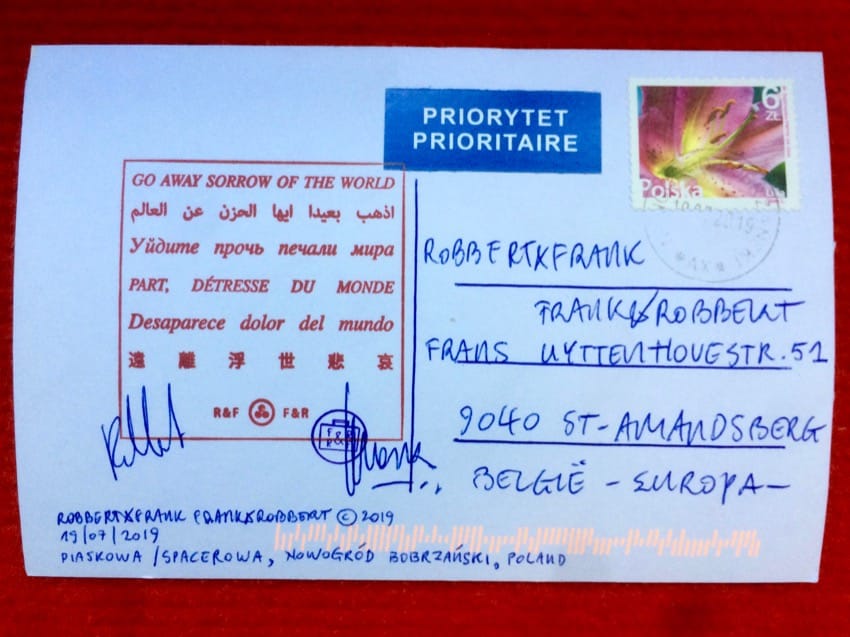 PRIORYTET
PRIORITAIRE
6 ZŁ
Polska
GO AWAY SORROW OF THE WORLD
اذهب بعيدا ايها الحزن عن العالم
Уйдите прочь печали мира
PART, DÉTRESSE DU MONDE
Desaparece dolor del mundo
遠離浮世悲哀
R&F F&R
ROBBERT&FRANK
FRANK&ROBBERT
FRANS UYTTENHOVESTR. 51
9040 ST-AMANDSBERG
BELGIË - EUROPA -
ROBBERT&FRANK FRANK&ROBBERT © 2019
19/07/2019
PIASKOWA / SPACEROWA, NOWOGRÓD BOBRZAŃSKI, POLAND